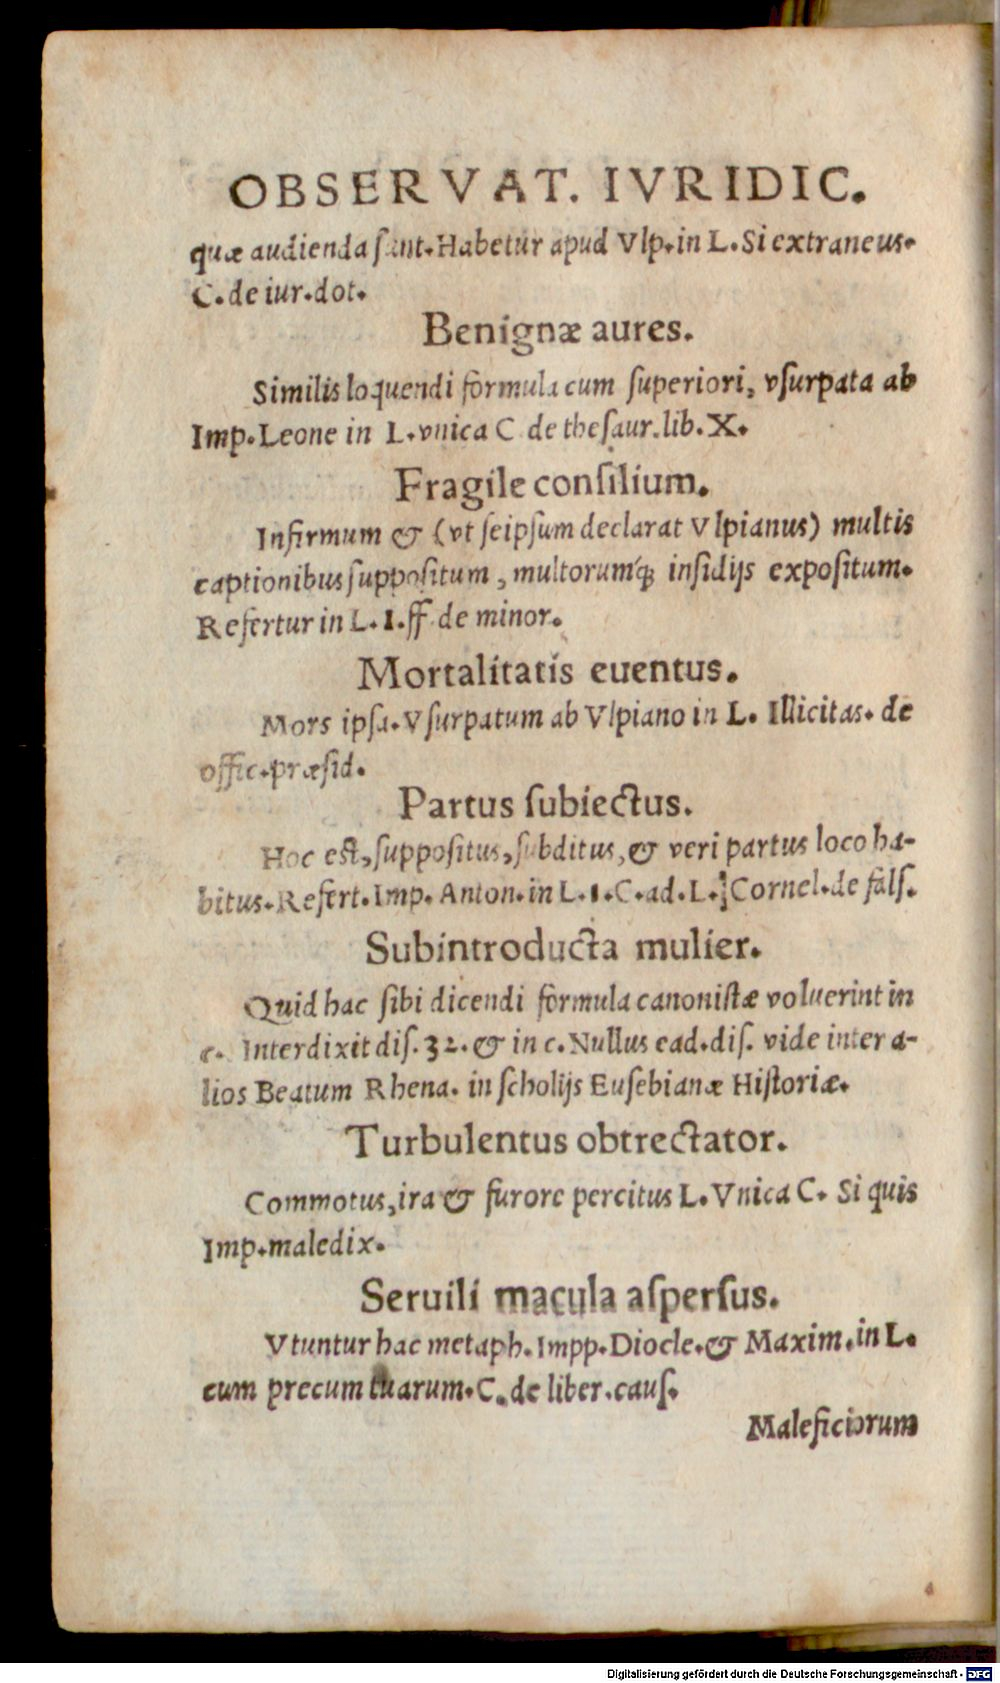 OBSERVAT. IVRIDIC.
quæ audienda sunt. Habetur apud Vlp. in L. Si extraneus.
C. de iur. dot.
Benignæ aures.
Similis loquendi formula cum superiori, vsurpata ab
Imp. Leone in L. vnica C de thesaur. lib. X.
Fragile consilium.
Infirmum & (vt seipsum declarat Vlpianus) multis
captionibus suppositum, multorumq́; insidijs expositum.
Refertur in L. 1. ff. de minor.
Mortalitatis euentus.
Mors ipsa. Vsurpatum ab Vlpiano in L. Illicitas. de
offic. præsid.
Partus subiectus.
Hoc est, suppositus, subditus, & veri partus loco ha-
bitus. Refert. Imp. Anton. in L. 1. C. ad. L. Cornel. de fals.
Subintroducta mulier.
Quid hac sibi dicendi formula canonistæ voluerint in
c. Interdixit dis. 32. & in c. Nullus ead. dis. vide inter a-
lios Beatum Rhena. in scholijs Eusebianæ Historiæ.
Turbulentus obtrectator.
Commotus, ira & furore percitus L. Vnica C. Si quis
Imp. maledix.
Seruili macula aspersus.
Vtuntur hac metaph. Impp. Diocle. & Maxim. in L.
cum precum tuarum. C. de liber. caus.
Maleficiorum
Digitalisierung gefördert durch die Deutsche Forschungsgemeinschaft - DFG